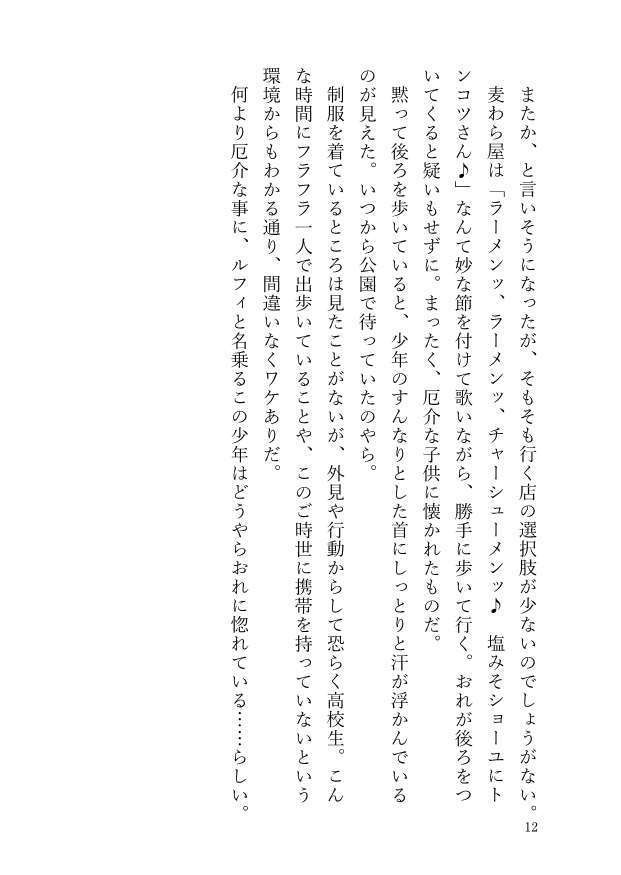 またか、と言いそうになったが、そもそも行く店の選択肢が少ないのでしょうがない。
麦わら屋は「ラーメンッ、ラーメンッ、チャーシューメンッ♪　塩みそショーユにト
ンコツさん♪」なんて妙な節を付けて歌いながら、勝手に歩いて行く。おれが後ろをつ
いてくると疑いもせずに。まったく、厄介な子供に懐かれたものだ。
黙って後ろを歩いていると、少年のすんなりとした首にしっとりと汗が浮かんでいる
のが見えた。いつから公園で待っていたのやら。
制服を着ているところは見たことがないが、外見や行動からして恐らく高校生。こん
な時間にフラフラ一人で出歩いていることや、このご時世に携帯を持っていないという
環境からもわかる通り、間違いなくワケありだ。
何より厄介な事に、ルフィと名乗るこの少年はどうやらおれに惚れている……らしい。
12